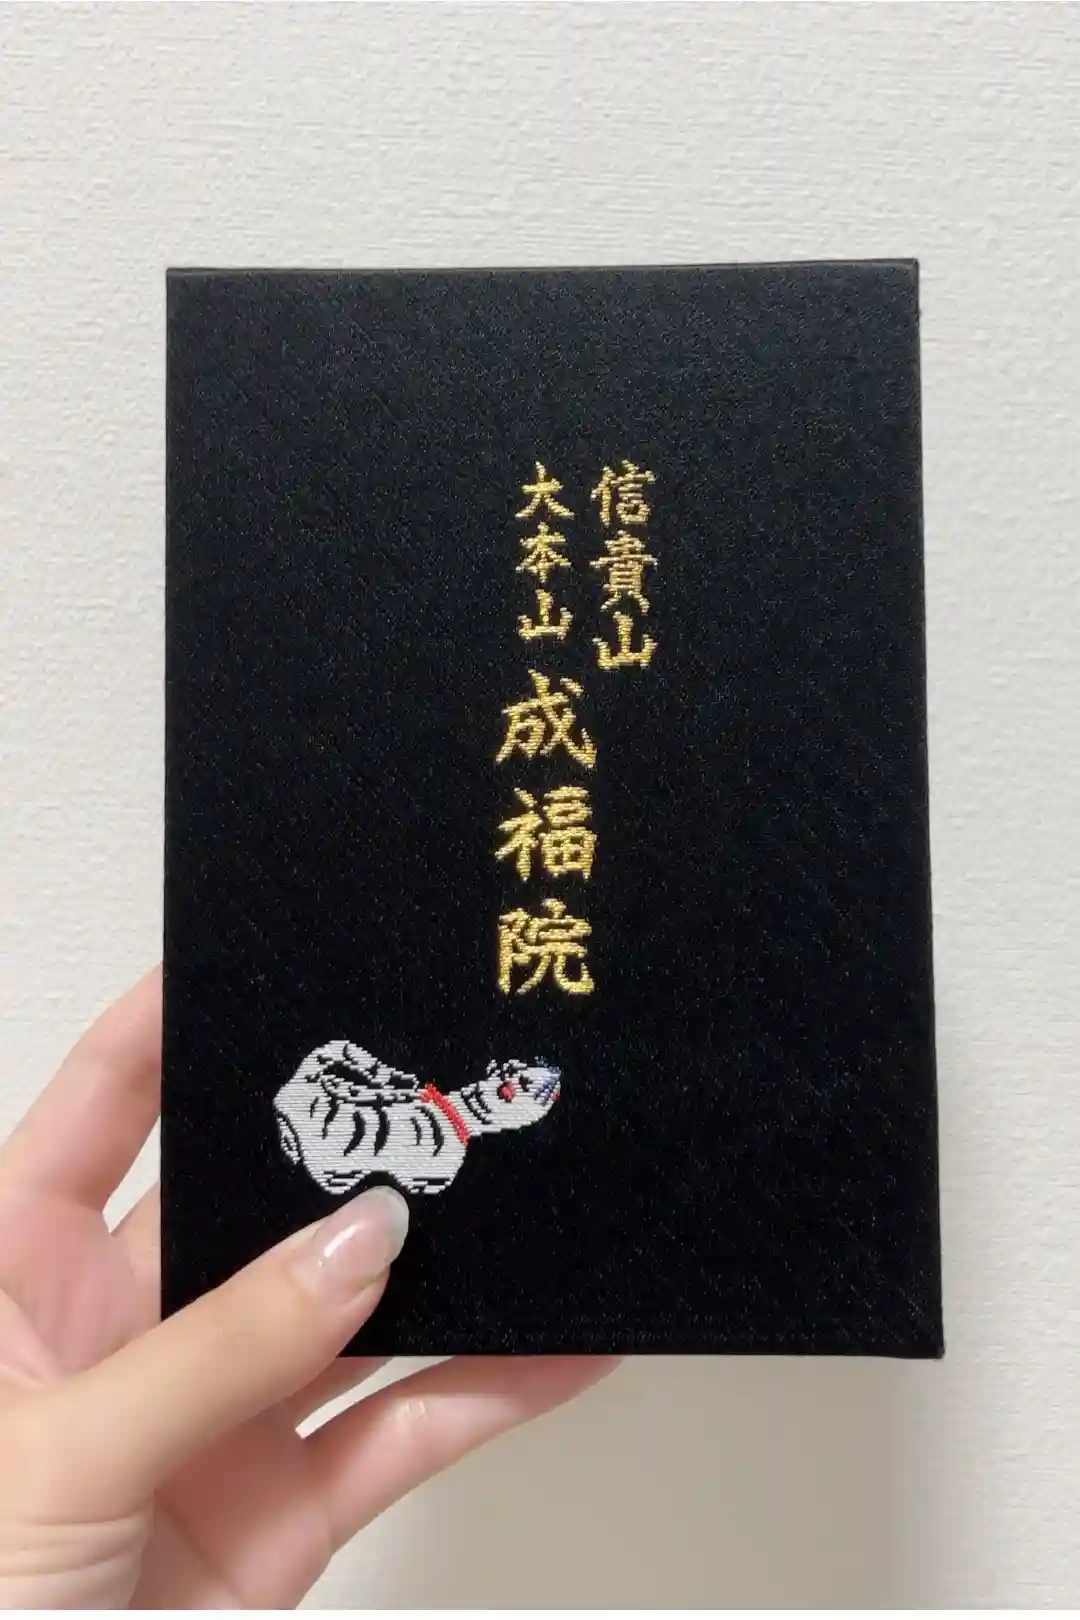 信貴山
大本山成福院